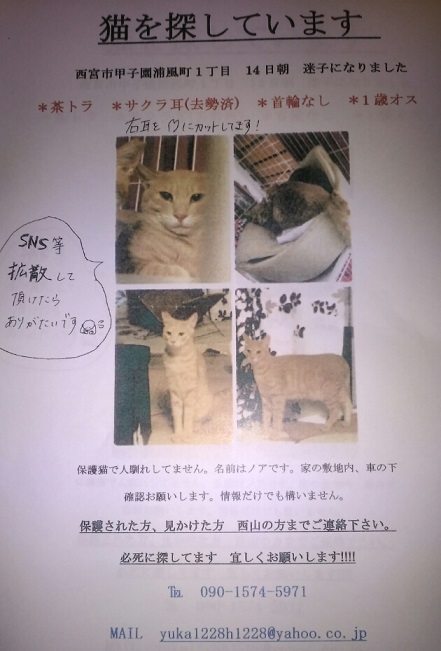 猫を探しています
西宮市甲子園浦風町１丁目　14日朝　迷子になりました
＊茶トラ　＊サクラ耳(去勢済)　＊首輪なし　＊１歳オス
右耳を
にカットしてます！
SNS等
拡散して
頂けたら
ありがたいです
保護猫で人馴れしてません。名前はノアです。家の敷地内、車の下
確認お願いします。情報だけでも構いません。
保護された方、見かけた方　西山の方までご連絡下さい。
必死に探してます　宜しくお願いします!!!!
℡　090-1574-5971
MAIL　yuka1228h1228@yahoo.co.jp